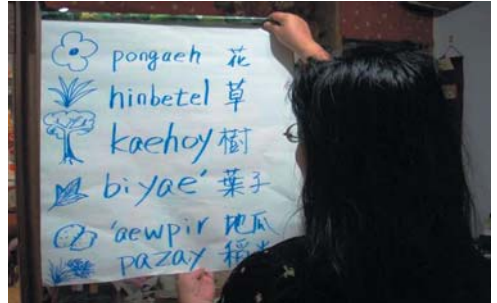 pongaeh 花
hinbetel 草
kaehoy 樹
biyae' 葉子
'aewpir 地瓜
pazay 稻米